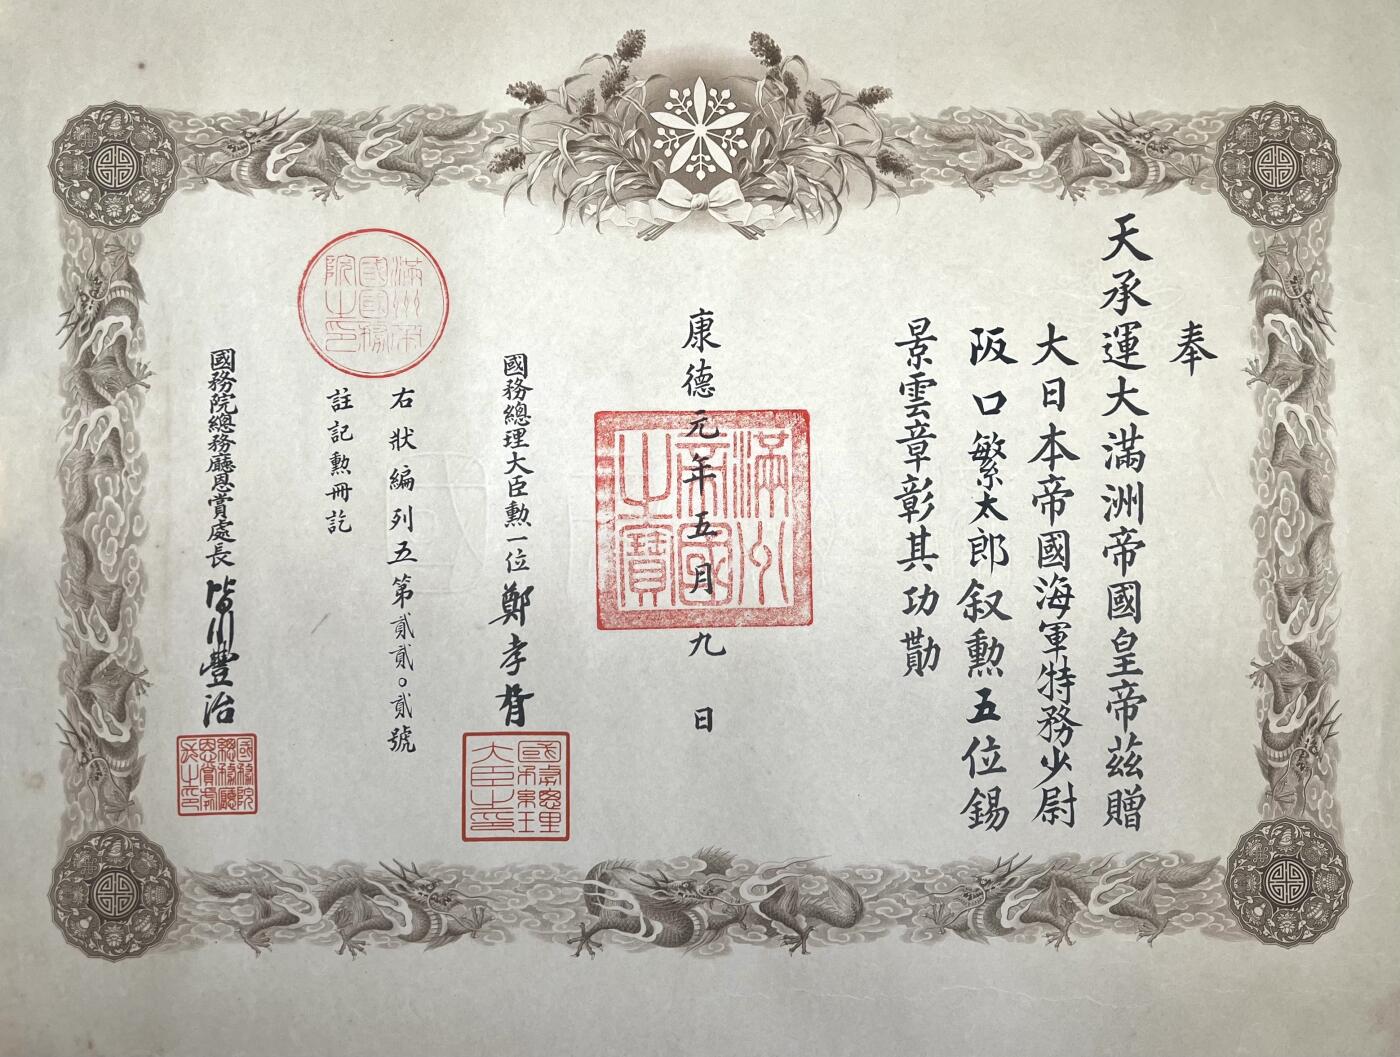 奉
天承運大滿洲帝國皇帝茲贈
大日本帝國海軍特務少尉
阪口繁太郎叙勲五位錫
景雲章彰其功勩
康德元年五月九日
滿州帝國之寶
國務總理大臣勲一位鄭孝胥
國務總理大臣之印
右狀編列五第貳貳○貳號
註記勲冊訖
滿州帝國國務院之印
國務院總務廳恩賞處長 皆川豐治
國務院總務廳恩賞處長之印